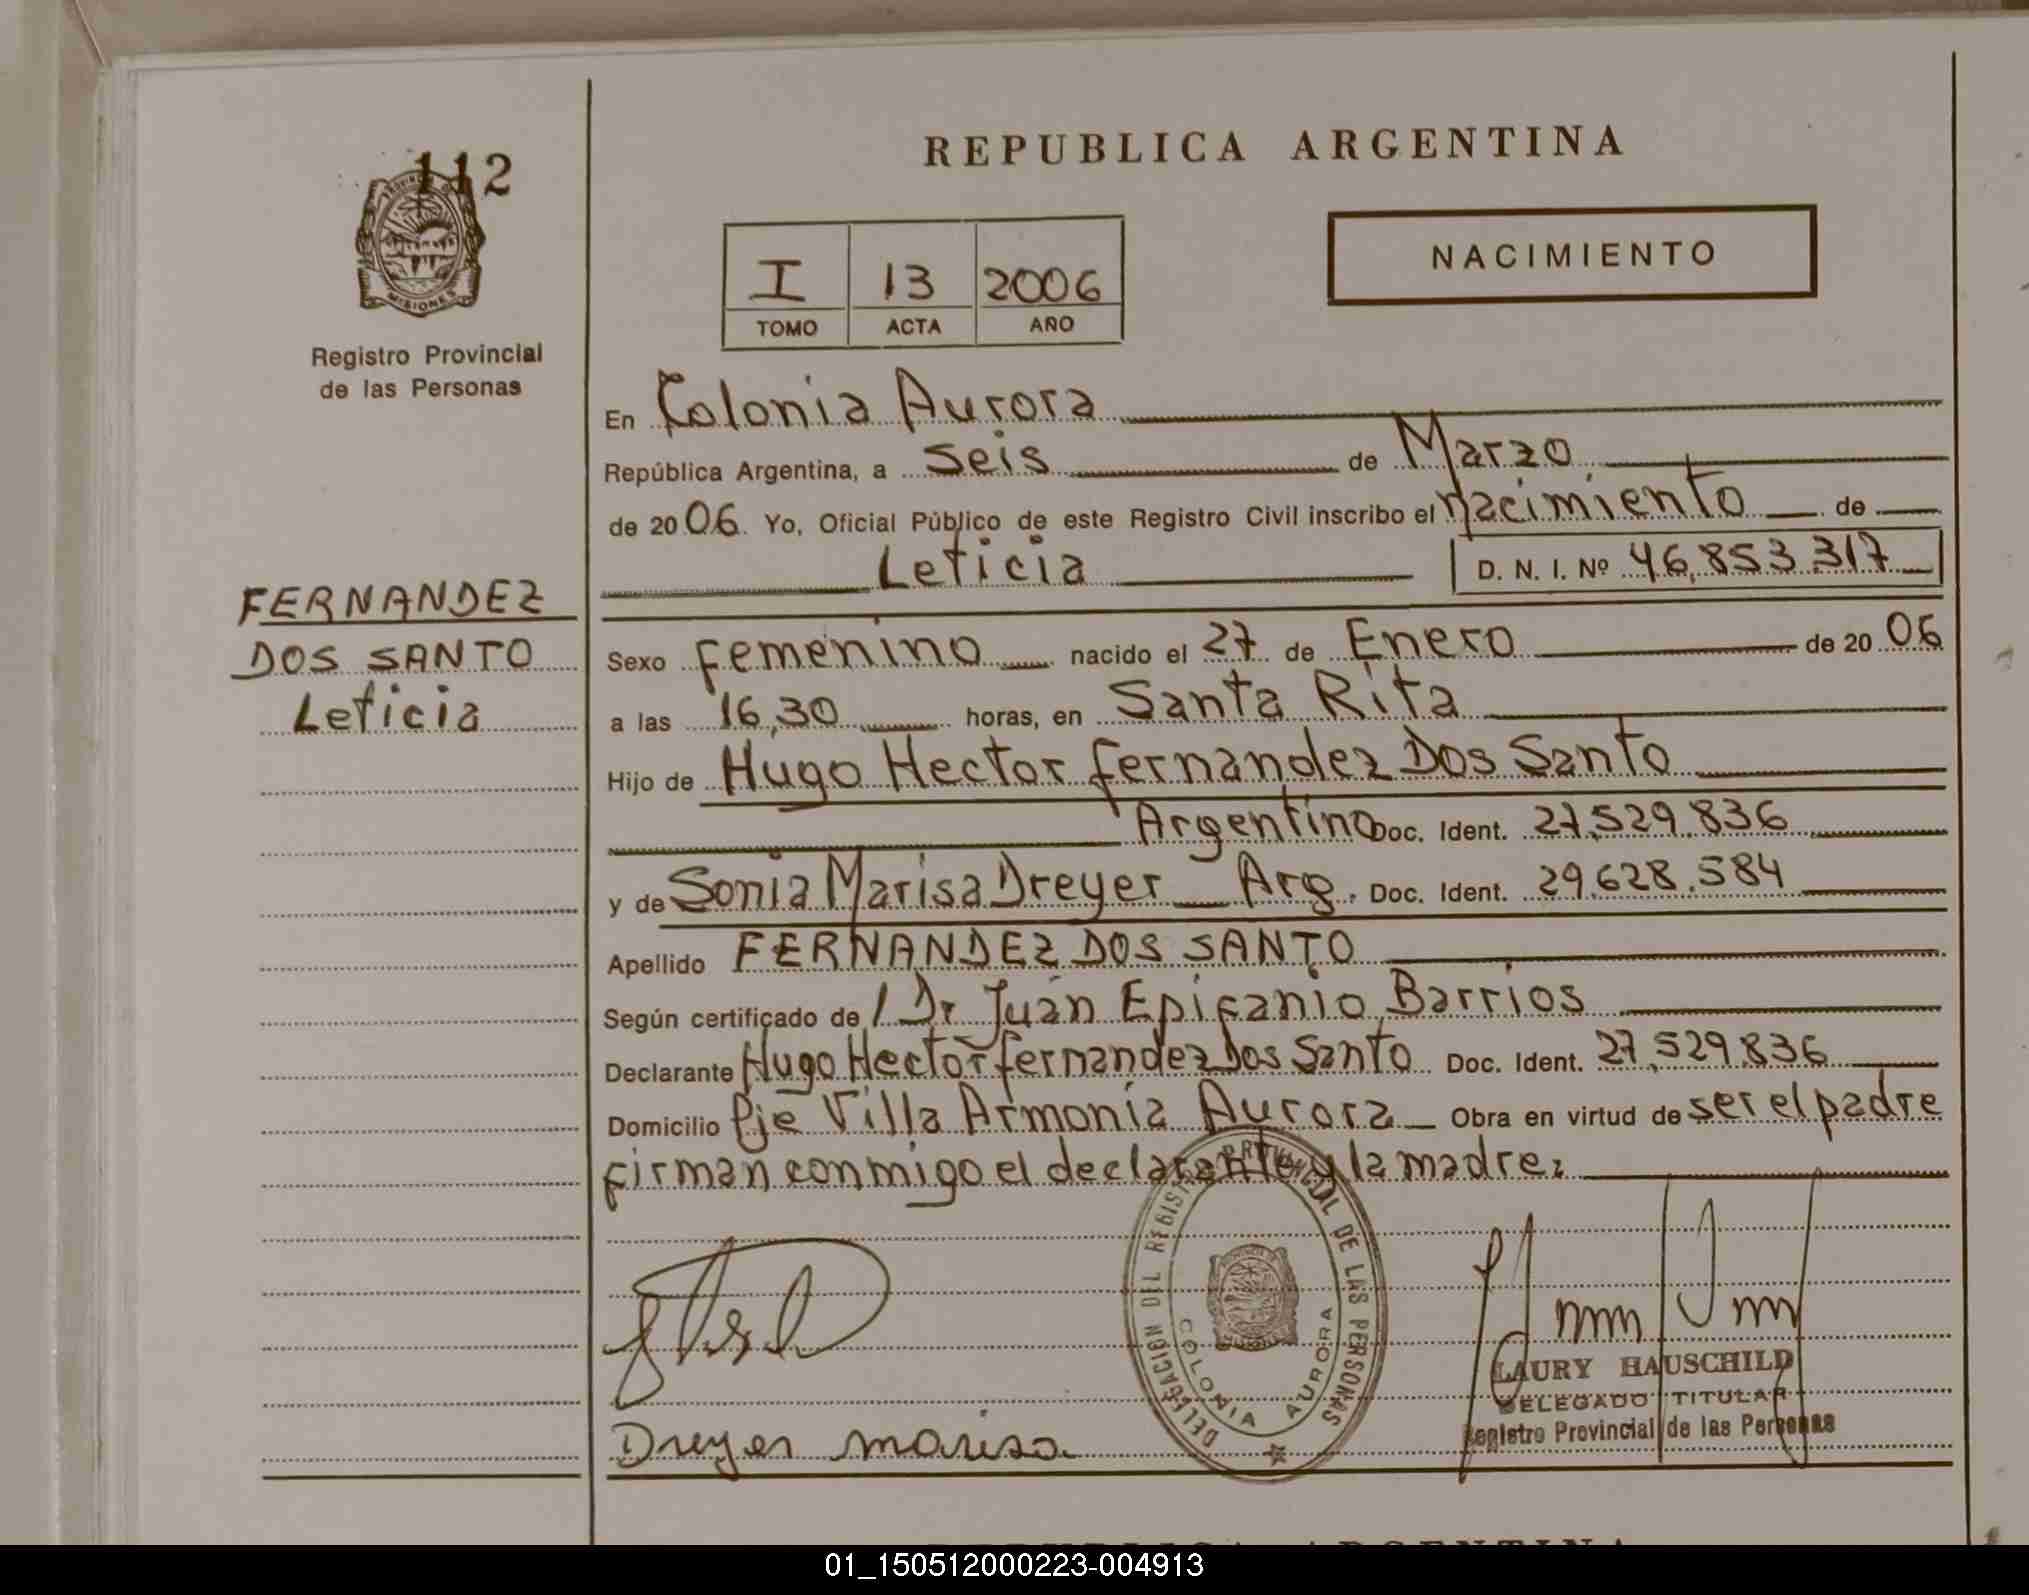 112
PROVINCIA DE
MISIONES
Registro Provincial
de las Personas
FERNANDEZ
DOS SANTO
Leticia
REPUBLICA ARGENTINA
I 13 2006
TOMO ACTA AÑO
NACIMIENTO
En Colonia Aurora
República Argentina, a seis de Marzo
de 2006. Yo, Oficial Público de este Registro Civil inscribo el nacimiento de
Leticia D. N. I. Nº 46,853.317
Sexo femenino nacido el 27 de Enero de 2006
a las 16,30 horas, en Santa Rita
Hijo de Hugo Hector fernandez Dos Santo
Argentino Doc. Ident. 27.529.836
y de Sonia Marisa Dreyer Arg. Doc. Ident. 29.628.584
Apellido FERNANDEZ DOS SANTO
Según certificado de / Dr Juan Epifanio Barrios
Declarante Hugo Hector fernandez Dos Santo Doc. Ident. 27.529.836
Domicilio Pje Villa Armonia Aurora Obra en virtud de ser el padre
firman conmigo el declarante y la madre.
DELEGACION DEL REGISTRO PROVINCIAL DE LAS PERSONAS
COLONIA AURORA
LAURY HAUSCHILD
DELEGADO TITULAR
Registro Provincial de las Personas
Dreyer marisa
REPUBLICA ARGENTINA
01_150512000223-004913